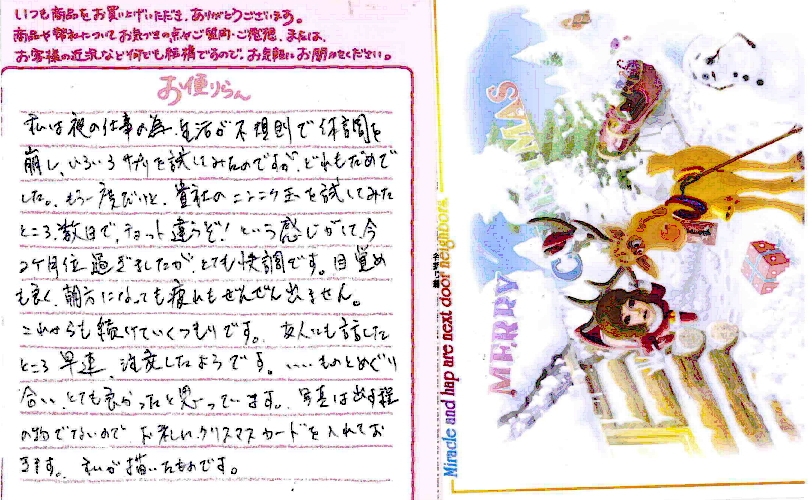 いつも商品をお買い上げいただき、ありがとうございます。
商品や弊社についてお気づきの点やご質問・ご感想、または、
お客様の近況など何でも結構ですので、お気軽にお聞かせください。
お便りらん
私は夜の仕事の為、生活が不規則で体調を
崩し、いろいろサプリを試してみたのですが、どれもだめで
した。もう一度だけと、貴社のニンニク玉を試してみた
ところ、数日で、チョット違うぞ！という感じがして、今
2ヶ月位過ぎましたが、とても快調です。目覚め
も良く、朝方になっても疲れもぜんぜん出ません。
これからも続けていくつもりです。友人にも話した
ところ早速、注文したようです。‥‥ものとめぐり
合い、とても良かったと思っています。写真は出す程
の物でないので、お礼にクリスマスカードを入れてお
きます。私が描いたものです。
MERRY CHRISTMAS
Miracle and hap are next door neighbors